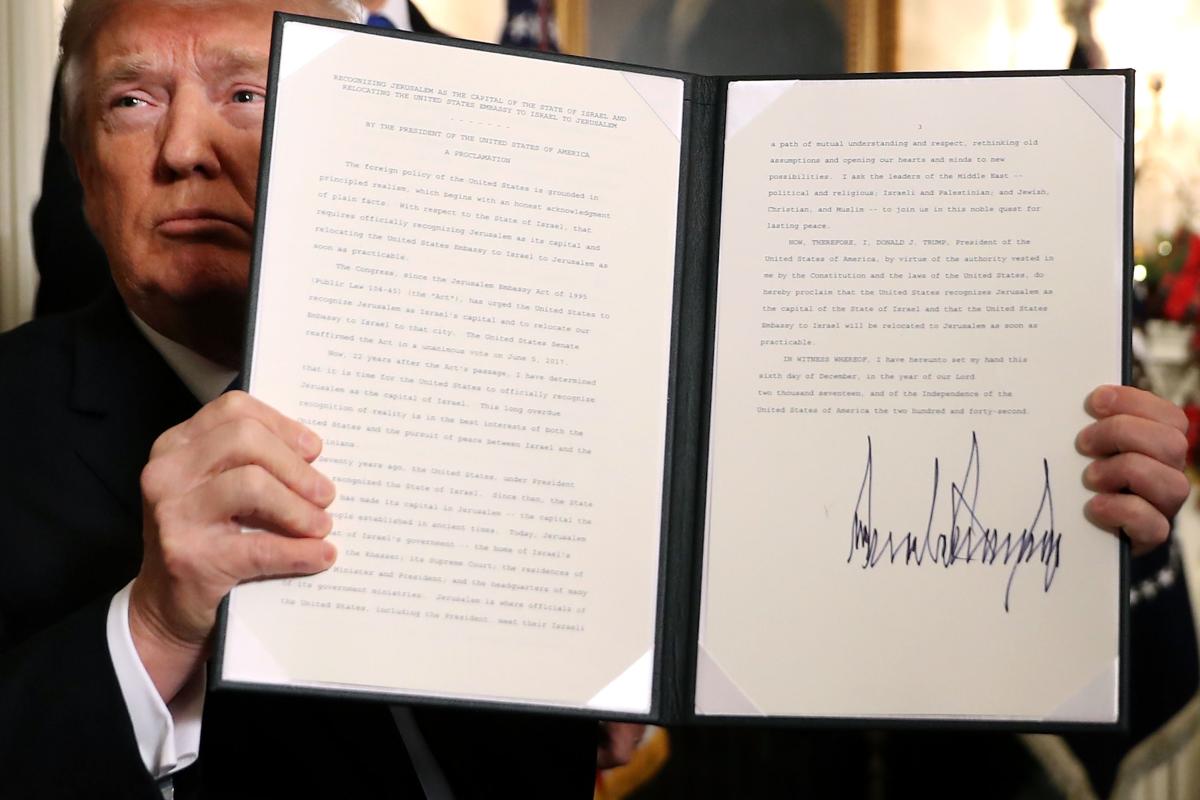 RECOGNIZING JERUSALEM AS THE CAPITAL OF THE STATE OF ISRAEL AND
RELOCATING THE UNITED STATES EMBASSY TO ISRAEL TO JERUSALEM
- - - - - - -
BY THE PRESIDENT OF THE UNITED STATES OF AMERICA
A PROCLAMATION
The foreign policy of the United States is grounded in
principled realism, which begins with an honest acknowledgment
of plain facts. With respect to the State of Israel, that
requires officially recognizing Jerusalem as its capital and
relocating the United States Embassy to Israel to Jerusalem as
soon as practicable.
The Congress, since the Jerusalem Embassy Act of 1995
(Public Law 104-45) (the "Act"), has urged the United States to
recognize Jerusalem as Israel's capital and to relocate our
Embassy to Israel to that city. The United States Senate
reaffirmed the Act in a unanimous vote on June 5, 2017.
Now, 22 years after the Act's passage, I have determined
that it is time for the United States to officially recognize
Jerusalem as the capital of Israel. This long overdue
recognition of reality is in the best interests of both the
United States and the pursuit of peace between Israel and the
tinians.
Seventy years ago, the United States, under President
recognized the State of Israel. Since then, the State
has made its capital in Jerusalem -- the capital the
ople established in ancient times. Today, Jerusalem
at of Israel's government -- the home of Israel's
the Knesset; its Supreme Court; the residences of
Minister and President; and the headquarters of many
of its government ministries. Jerusalem is where officials of
the United States, including the President, meet their Israeli
3
a path of mutual understanding and respect, rethinking old
assumptions and opening our hearts and minds to new
possibilities. I ask the leaders of the Middle East --
political and religious; Israeli and Palestinian; and Jewish,
Christian, and Muslim -- to join us in this noble quest for
lasting peace.
NOW, THEREFORE, I, DONALD J. TRUMP, President of the
United States of America, by virtue of the authority vested in
me by the Constitution and the laws of the United States, do
hereby proclaim that the United States recognizes Jerusalem as
the capital of the State of Israel and that the United States
Embassy to Israel will be relocated to Jerusalem as soon as
practicable.
IN WITNESS WHEREOF, I have hereunto set my hand this
sixth day of December, in the year of our Lord
two thousand seventeen, and of the Independence of the
United States of America the two hundred and forty-second.